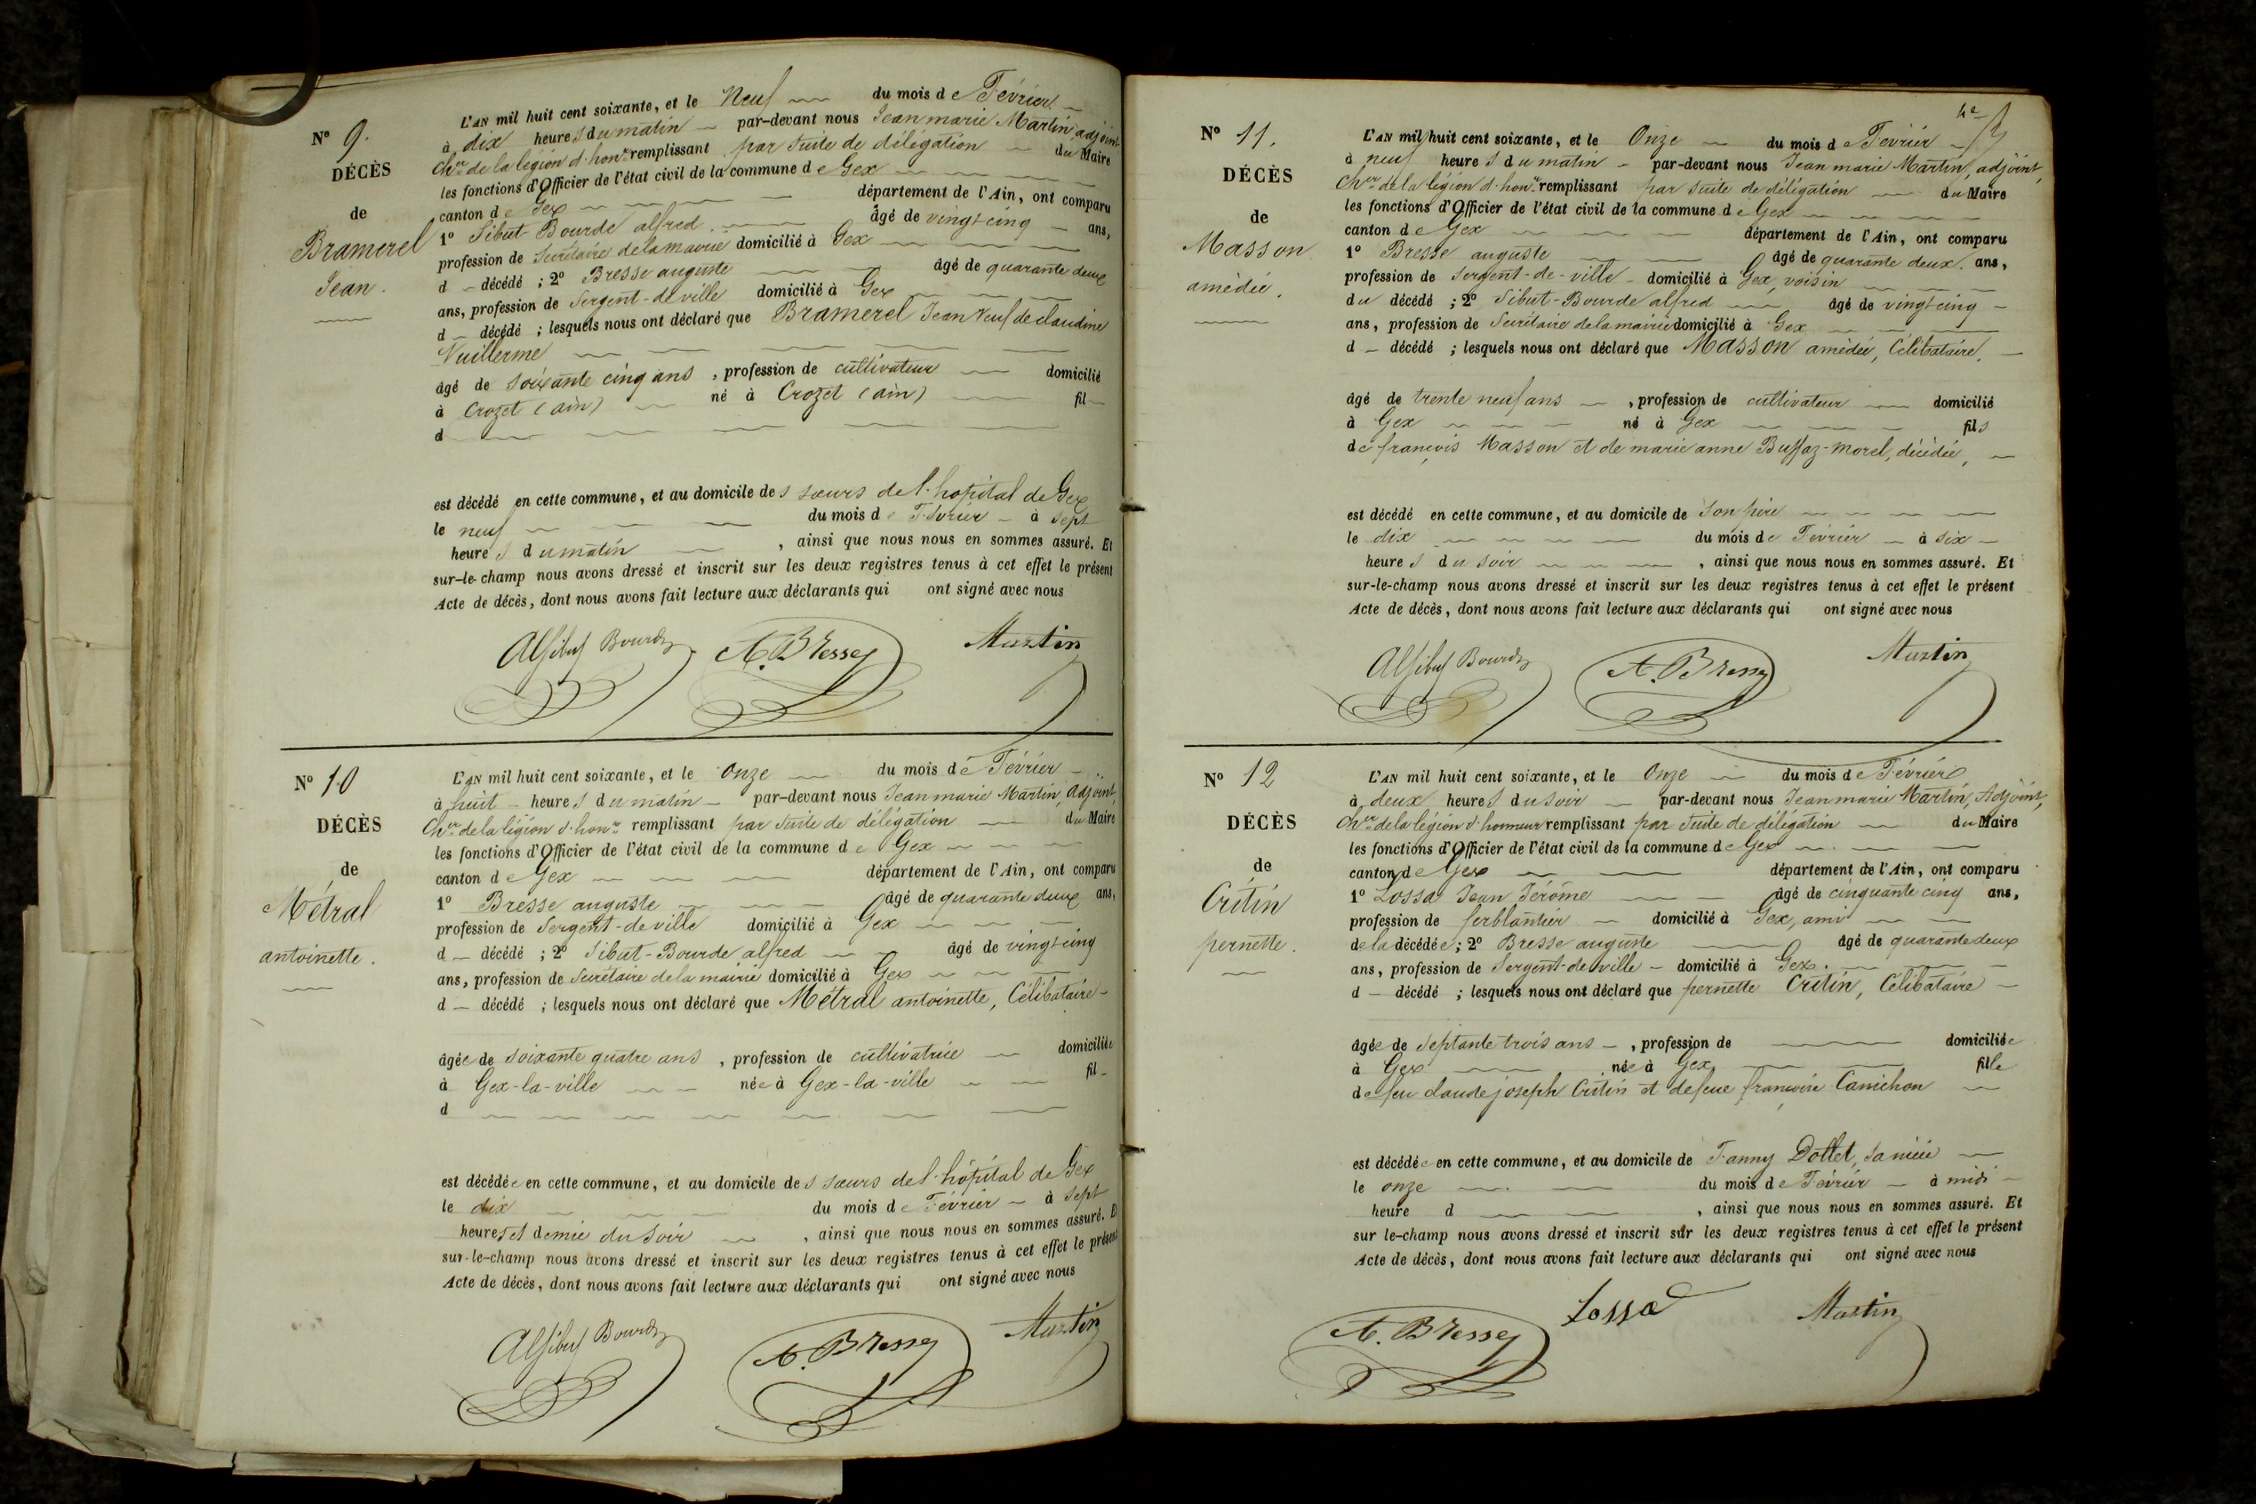 N° 9.
DÉCÈS
de
Bramerel
Jean.
L'AN mil huit cent soixante, et le Neuf du mois de Février
à dix heures du matin par-devant nous Jean marie Martin adjoint
Cher de la légion d'honr remplissant par suite de délégation du Maire
les fonctions d'Officier de l'état civil de la commune de Gex
canton de Gex département de l'Ain, ont comparu
1° Sibut-Bourde alfred âgé de vingt-cinq ans,
profession de Secrétaire de la mairie domicilié à Gex
d décédé ; 2° Bresse auguste âgé de quarante deux
ans, profession de Sergent-de ville domicilié à Gex
d décédé ; lesquels nous ont déclaré que Bramerel Jean Veuf de claudine
Vuillerme
âgé de soixante cinq ans, profession de cultivateur domicilié
à Crozet (ain) né à Crozet (ain) fil
d
est décédé en cette commune, et au domicile des sœurs de l'hopital de Gex
le neuf du mois de Février à sept
heures du matin, ainsi que nous nous en sommes assuré. Et
sur-le-champ nous avons dressé et inscrit sur les deux registres tenus à cet effet le présent
Acte de décès, dont nous avons fait lecture aux déclarants qui ont signé avec nous
Alf Sibut Bourde A. Bresse Martin
N° 10
DÉCÈS
de
Métral
antoinette.
L'AN mil huit cent soixante, et le Onze du mois de Février
à huit heures du matin par-devant nous Jean marie Martin, Adjoint,
Cher de la légion d'honr remplissant par suite de délégation du Maire
les fonctions d'Officier de l'état civil de la commune de Gex
canton de Gex département de l'Ain, ont comparu
1° Bresse auguste âgé de quarante deux ans,
profession de Sergent-de ville domicilié à Gex
d décédé ; 2° Sibut-Bourde alfred âgé de vingt-cinq
ans, profession de Secrétaire de la mairie domicilié à Gex
d décédé ; lesquels nous ont déclaré que Métral antoinette, Célibataire
âgée de soixante quatre ans, profession de cultivatrice domiciliée
à Gex-la-ville née à Gex-la-ville fil
d
est décédée en cette commune, et au domicile des sœurs de l'hôpital de Gex
le dix du mois de Février à sept
heures et demie du soir, ainsi que nous nous en sommes assuré. Et
sur-le-champ nous avons dressé et inscrit sur les deux registres tenus à cet effet le présent
Acte de décès, dont nous avons fait lecture aux déclarants qui ont signé avec nous
Alf Sibut Bourde A. Bresse Martin
N° 11.
DÉCÈS
de
Masson
amèdée.
L'AN mil huit cent soixante, et le Onze du mois de Février
à neuf heures du matin par-devant nous Jean marie Martin, adjoint,
Cher de la légion d'honr remplissant par suite de délégation du Maire
les fonctions d'Officier de l'état civil de la commune de Gex
canton de Gex département de l'Ain, ont comparu
1° Bresse auguste âgé de quarante deux. ans,
profession de Sergent-de-ville domicilié à Gex, voisin
du décédé ; 2° Sibut-Bourde alfred âgé de vingt-cinq
ans, profession de Secrétaire de la mairie domicilié à Gex
d décédé ; lesquels nous ont déclaré que Masson amèdée, Célibataire,
âgé de trente neuf ans, profession de cultivateur domicilié
à Gex né à Gex fils
de françois Masson et de marie anne Buffaz-morel, décèdée,
est décédé en cette commune, et au domicile de son père
le dix du mois de Février à six
heures du soir, ainsi que nous nous en sommes assuré. Et
sur-le-champ nous avons dressé et inscrit sur les deux registres tenus à cet effet le présent
Acte de décès, dont nous avons fait lecture aux déclarants qui ont signé avec nous
Alf Sibut Bourde A. Bresse Martin
N° 12
DÉCÈS
de
Critin
pernette.
L'AN mil huit cent soixante, et le Onze du mois de Février
à deux heures du soir par-devant nous Jean marie Martin, Adjoint,
Cher de la légion d'honneur remplissant par suite de délégation du Maire
les fonctions d'Officier de l'état civil de la commune de Gex
canton de Gex département de l'Ain, ont comparu
1° Lossa Jean Jérôme âgé de cinquante cinq ans,
profession de ferblantier domicilié à Gex, ami
de la décédée ; 2° Bresse auguste âgé de quarante deux
ans, profession de Sergent-de-ville domicilié à Gex.
d décédé ; lesquels nous ont déclaré que pernette Critin, Célibataire
âgée de septante trois ans, profession de domiciliée
à Gex née à Gex fille
de feu claude joseph Critin et de feue françoise Canichon
est décédée en cette commune, et au domicile de Fanny Dottet, sa nièce
le onze du mois de Février à midi
heure d, ainsi que nous nous en sommes assuré. Et
sur le-champ nous avons dressé et inscrit sur les deux registres tenus à cet effet le présent
Acte de décès, dont nous avons fait lecture aux déclarants qui ont signé avec nous
A. Bresse Lossa Martin